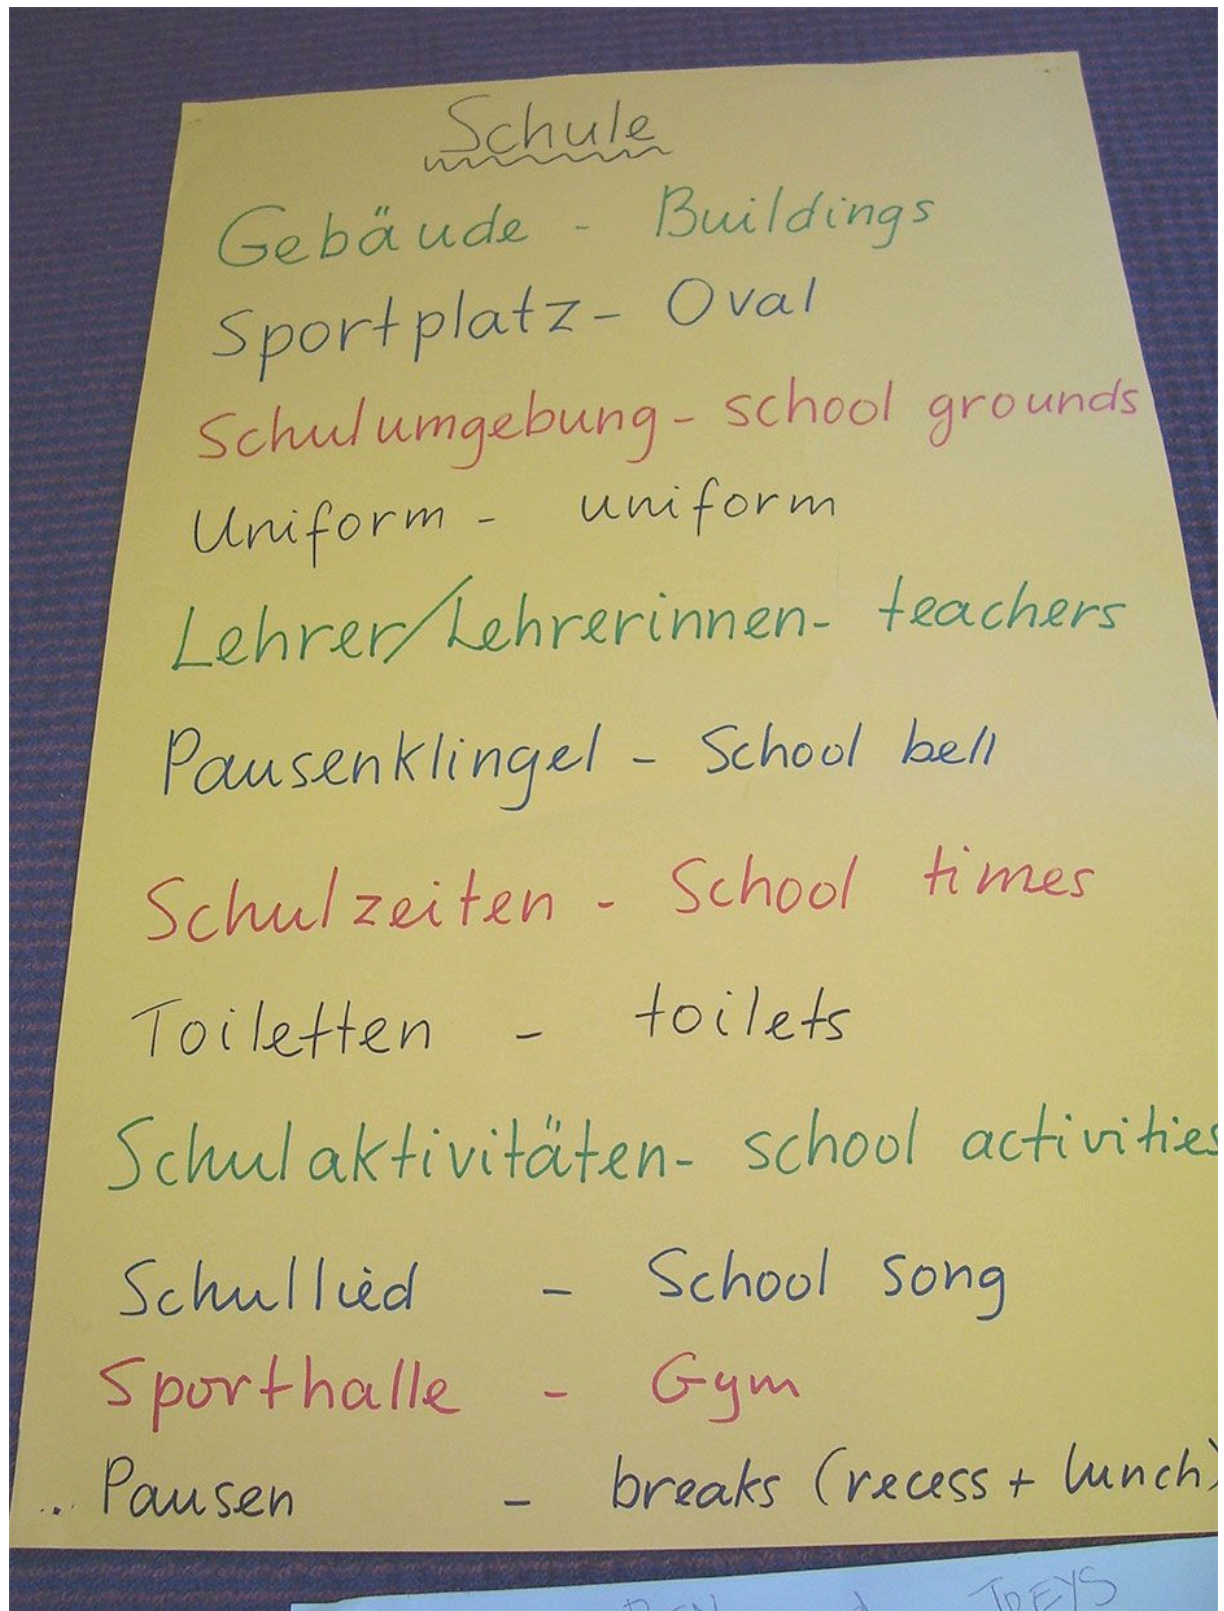 Schule
Gebäude - Buildings
Sportplatz - Oval
Schulumgebung - school grounds
Uniform - uniform
Lehrer/Lehrerinnen - teachers
Pausenklingel - School bell
Schulzeiten - School times
Toiletten - toilets
Schulaktivitäten - school activities
Schullied - School song
Sporthalle - Gym
.. Pausen - breaks (recess + lunch)